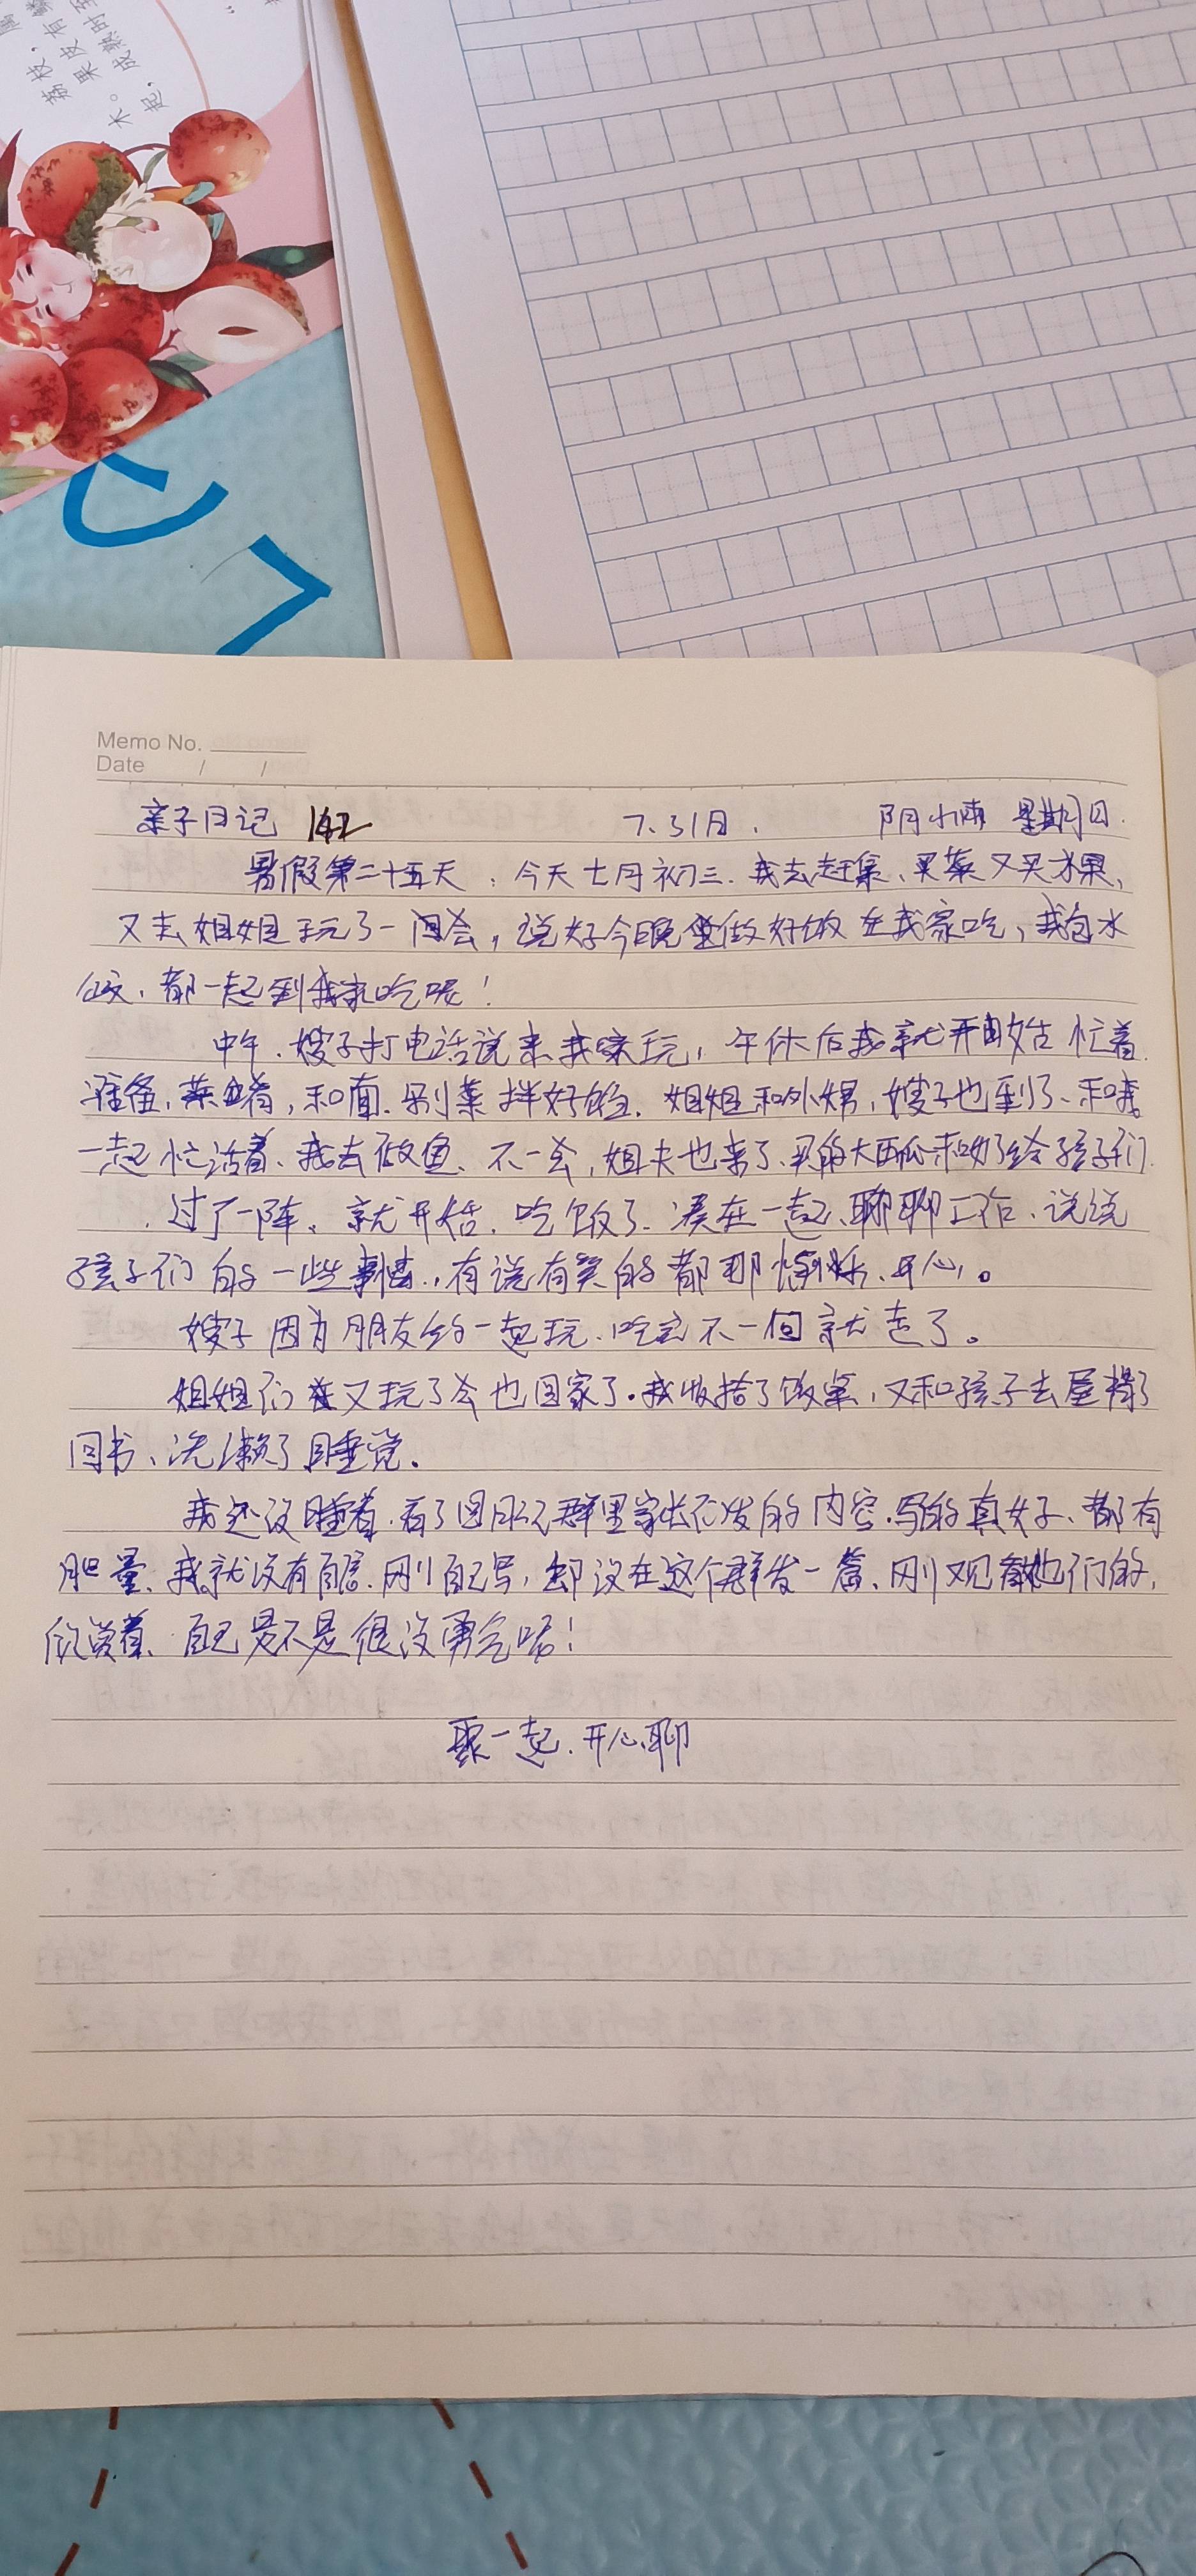 荔枝，有
果皮
成熟时
木。
起，
Memo No.
Date / /
亲子日记 142 7、31月. 阴小雨 星期日.
暑假第二十五天，今天七月初三.我去赶集、买菜又买水果，
又去姐姐玩了一会，说好今晚做好饭在我家吃，我包水
饺，都一起到我家吃呢！
中午.嫂子打电话说来我家玩，午休后我就开始忙着
准备，菜肴，和面.剁菜拌好馅.姐姐和外甥，嫂子也到了、和我
一起忙活着、我去做鱼、不一会，姐夫也来了、买的大西瓜和奶给孩子们
过了一阵、就开始.吃饭了.凑在一起、聊聊工作、说说
孩子们的一些事情.，有说有笑的都那愉快、开心。
嫂子因为朋友约一起玩、吃完不一回就走了。
姐姐们又玩了会也回家了.我收拾了饭桌，又和孩子去屋
图书、洗漱了睡觉.
我还没睡着.看了日记群里家长不发的内容.写的真好、都有
胆量、我就没有自信.刚自己写，却没在这个群发一篇、刚观看他们的，
欣赏着、自己是不是很没勇气呢！
聚一起.开心聊